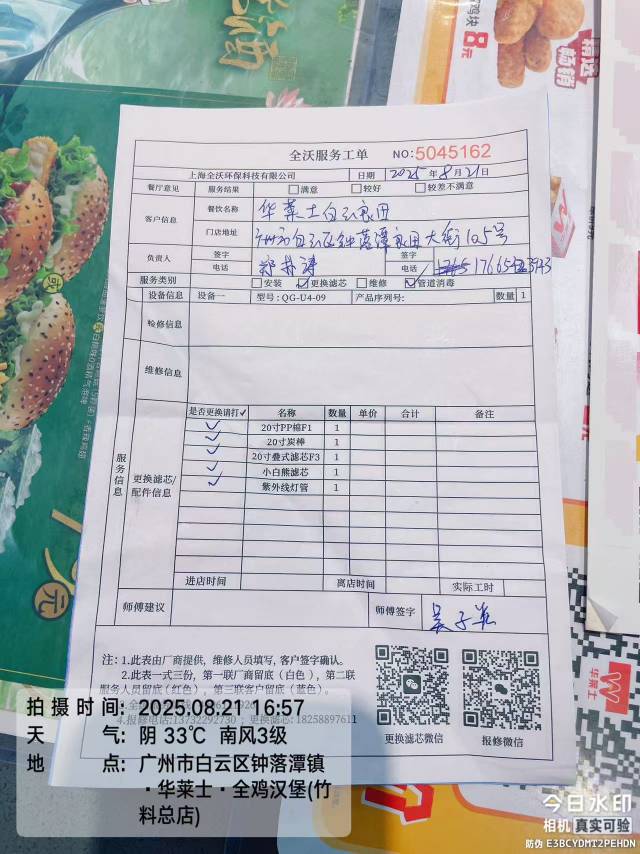 鸡块8元
精选
畅销
酒
或
元
全沃服务工单 NO:5045162
上海全沃环保科技有限公司 日期 2025年8月21日
餐厅意见 服务结果 满意 较好 较差不满意
客户信息 餐饮名称 华莱士白云良田
门店地址 广州市白云区钟落潭良田大街105号
负责人 签字 签字
电话 电话
服务类别 安装 更换滤芯 维修 管道消毒
设备信息 设备一 型号: QG-U4-09 产品序列号: 数量 1
检修信息
维修信息
服务信息
更换滤芯/配件信息
是否更换请打✓ 名称 数量 单价 合计 备注
✓ 20寸PP棉F1 1
✓ 20寸炭棒 1
✓ 20寸叠式滤芯F3 1
✓ 小白熊滤芯 1
✓ 紫外线灯管 1
进店时间 离店时间 实际工时
师傅建议 师傅签字
注: 1.此表由厂商提供, 维修人员填写, 客户签字确认。
2.此表一式三份, 第一联厂商留底(白色), 第二联
服务人员留底(红色), 第三联客户留底(蓝色)。
4.报修电话:13732292730 ; 更换滤芯: 18258897611
更换滤芯微信 报修微信
华莱士
拍摄时间: 2025.08.21 16:57
天气: 阴 33℃ 南风3级
地点: 广州市白云区钟落潭镇
·华莱士·全鸡汉堡(竹
料总店)
今日水印
相机 真实可验
防伪 E3BCYDMT2PEHDN